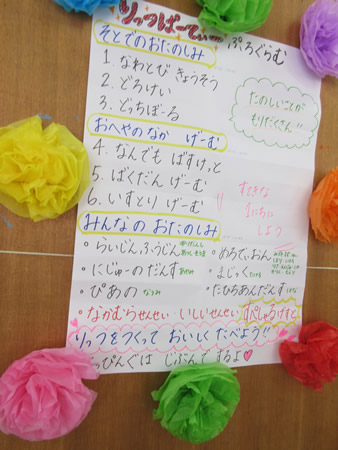 りっつぱーてぃー
ぷろぐらむ
そとでのおたのしみ
1. なわとび きょうそう
2. どろけい
3. どっちぼーる
たのしいことが
もりだくさん!!
おへやのなか げーむ
4. なんでも ばすけっと
5. ばくだん げーむ
6. いすとり げーむ
すてきな
1にちに
しよう
みんなの おたのしみ
・らいじん,ふうじん
・めろでぃおん
・にじゅーの だんす
・まじっく
・ぴあの
・たひちあんだんす
・なかむらせんせい・いしいせんせい すぺしゃるげすと
りっつをつくって おいしく たべよう!!
っぴんぐは じぶんで するよ♥